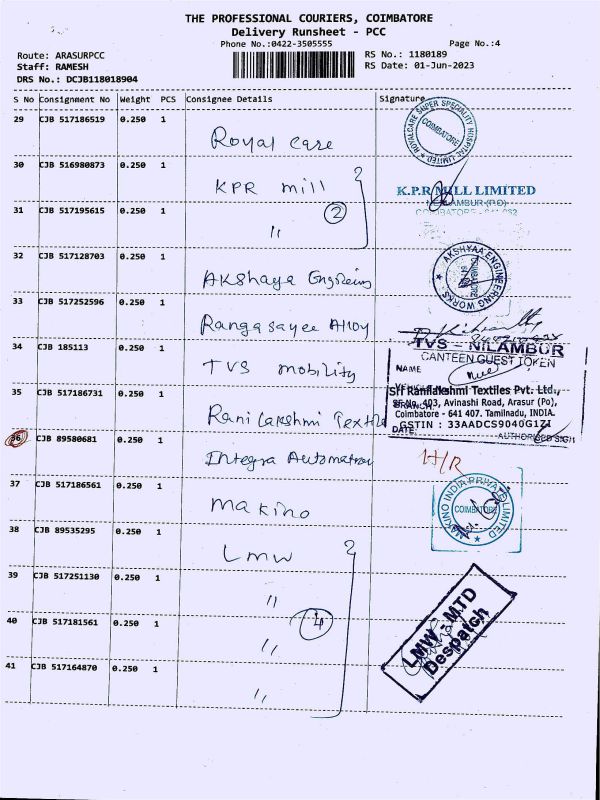 THE PROFESSIONAL COURIERS, COIMBATORE
Delivery Runsheet - PCC
Phone No.:0422-3505555 Page No.:4
Route: ARASURPCC RS No.: 1180189
Staff: RAMESH RS Date: 01-Jun-2023
DRS No.: DCJB118018904
S No Consignment No Weight PCS Consignee Details Signature
29 CJB 517186519 0.250 1 Royal care
ROYALCARE SUPER SPECIALITY HOSPITAL LIMITED COIMBATORE
30 CJB 516980873 0.250 1 KPR mill
K.P.R MILL LIMITED
31 CJB 517195615 0.250 1 〃 2
32 CJB 517128703 0.250 1 Akshaya Engineering
AKSHYAA ENGINEERING WORKS
33 CJB 517252596 0.250 1 Rangasayee Alloy
34 CJB 185113 0.250 1 TVS mobility
TVS - NILAMBUR
CANTEEN GUEST TOKEN
NAME
35 CJB 517186731 0.250 1 Rani Lakshmi Textile
Sri Ranilakshmi Textiles Pvt. Ltd.,
SF.No. 403, Avinashi Road, Arasur (Po),
Coimbatore - 641 407. Tamilnadu, INDIA.
GSTIN : 33AADCS9040G1ZI
DATE:
36 CJB 89580681 0.250 1 Integra Automation H/R
37 CJB 517186561 0.250 1 Makino
MAKINO INDIA PRIVATE LIMITED COIMBATORE
38 CJB 89535295 0.250 1 LMW
39 CJB 517251130 0.250 1 〃
40 CJB 517181561 0.250 1 〃 4
LMW - MTD
Despatch
41 CJB 517164870 0.250 1 〃